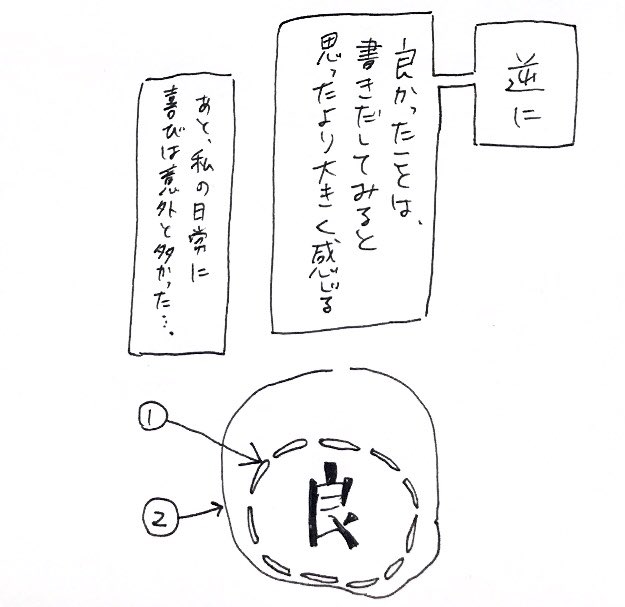 逆に
良かったことは、
書きだしてみると
思ったより大きく感じる
あと、私の日常に
喜びは意外と多かった…。
①
②
良